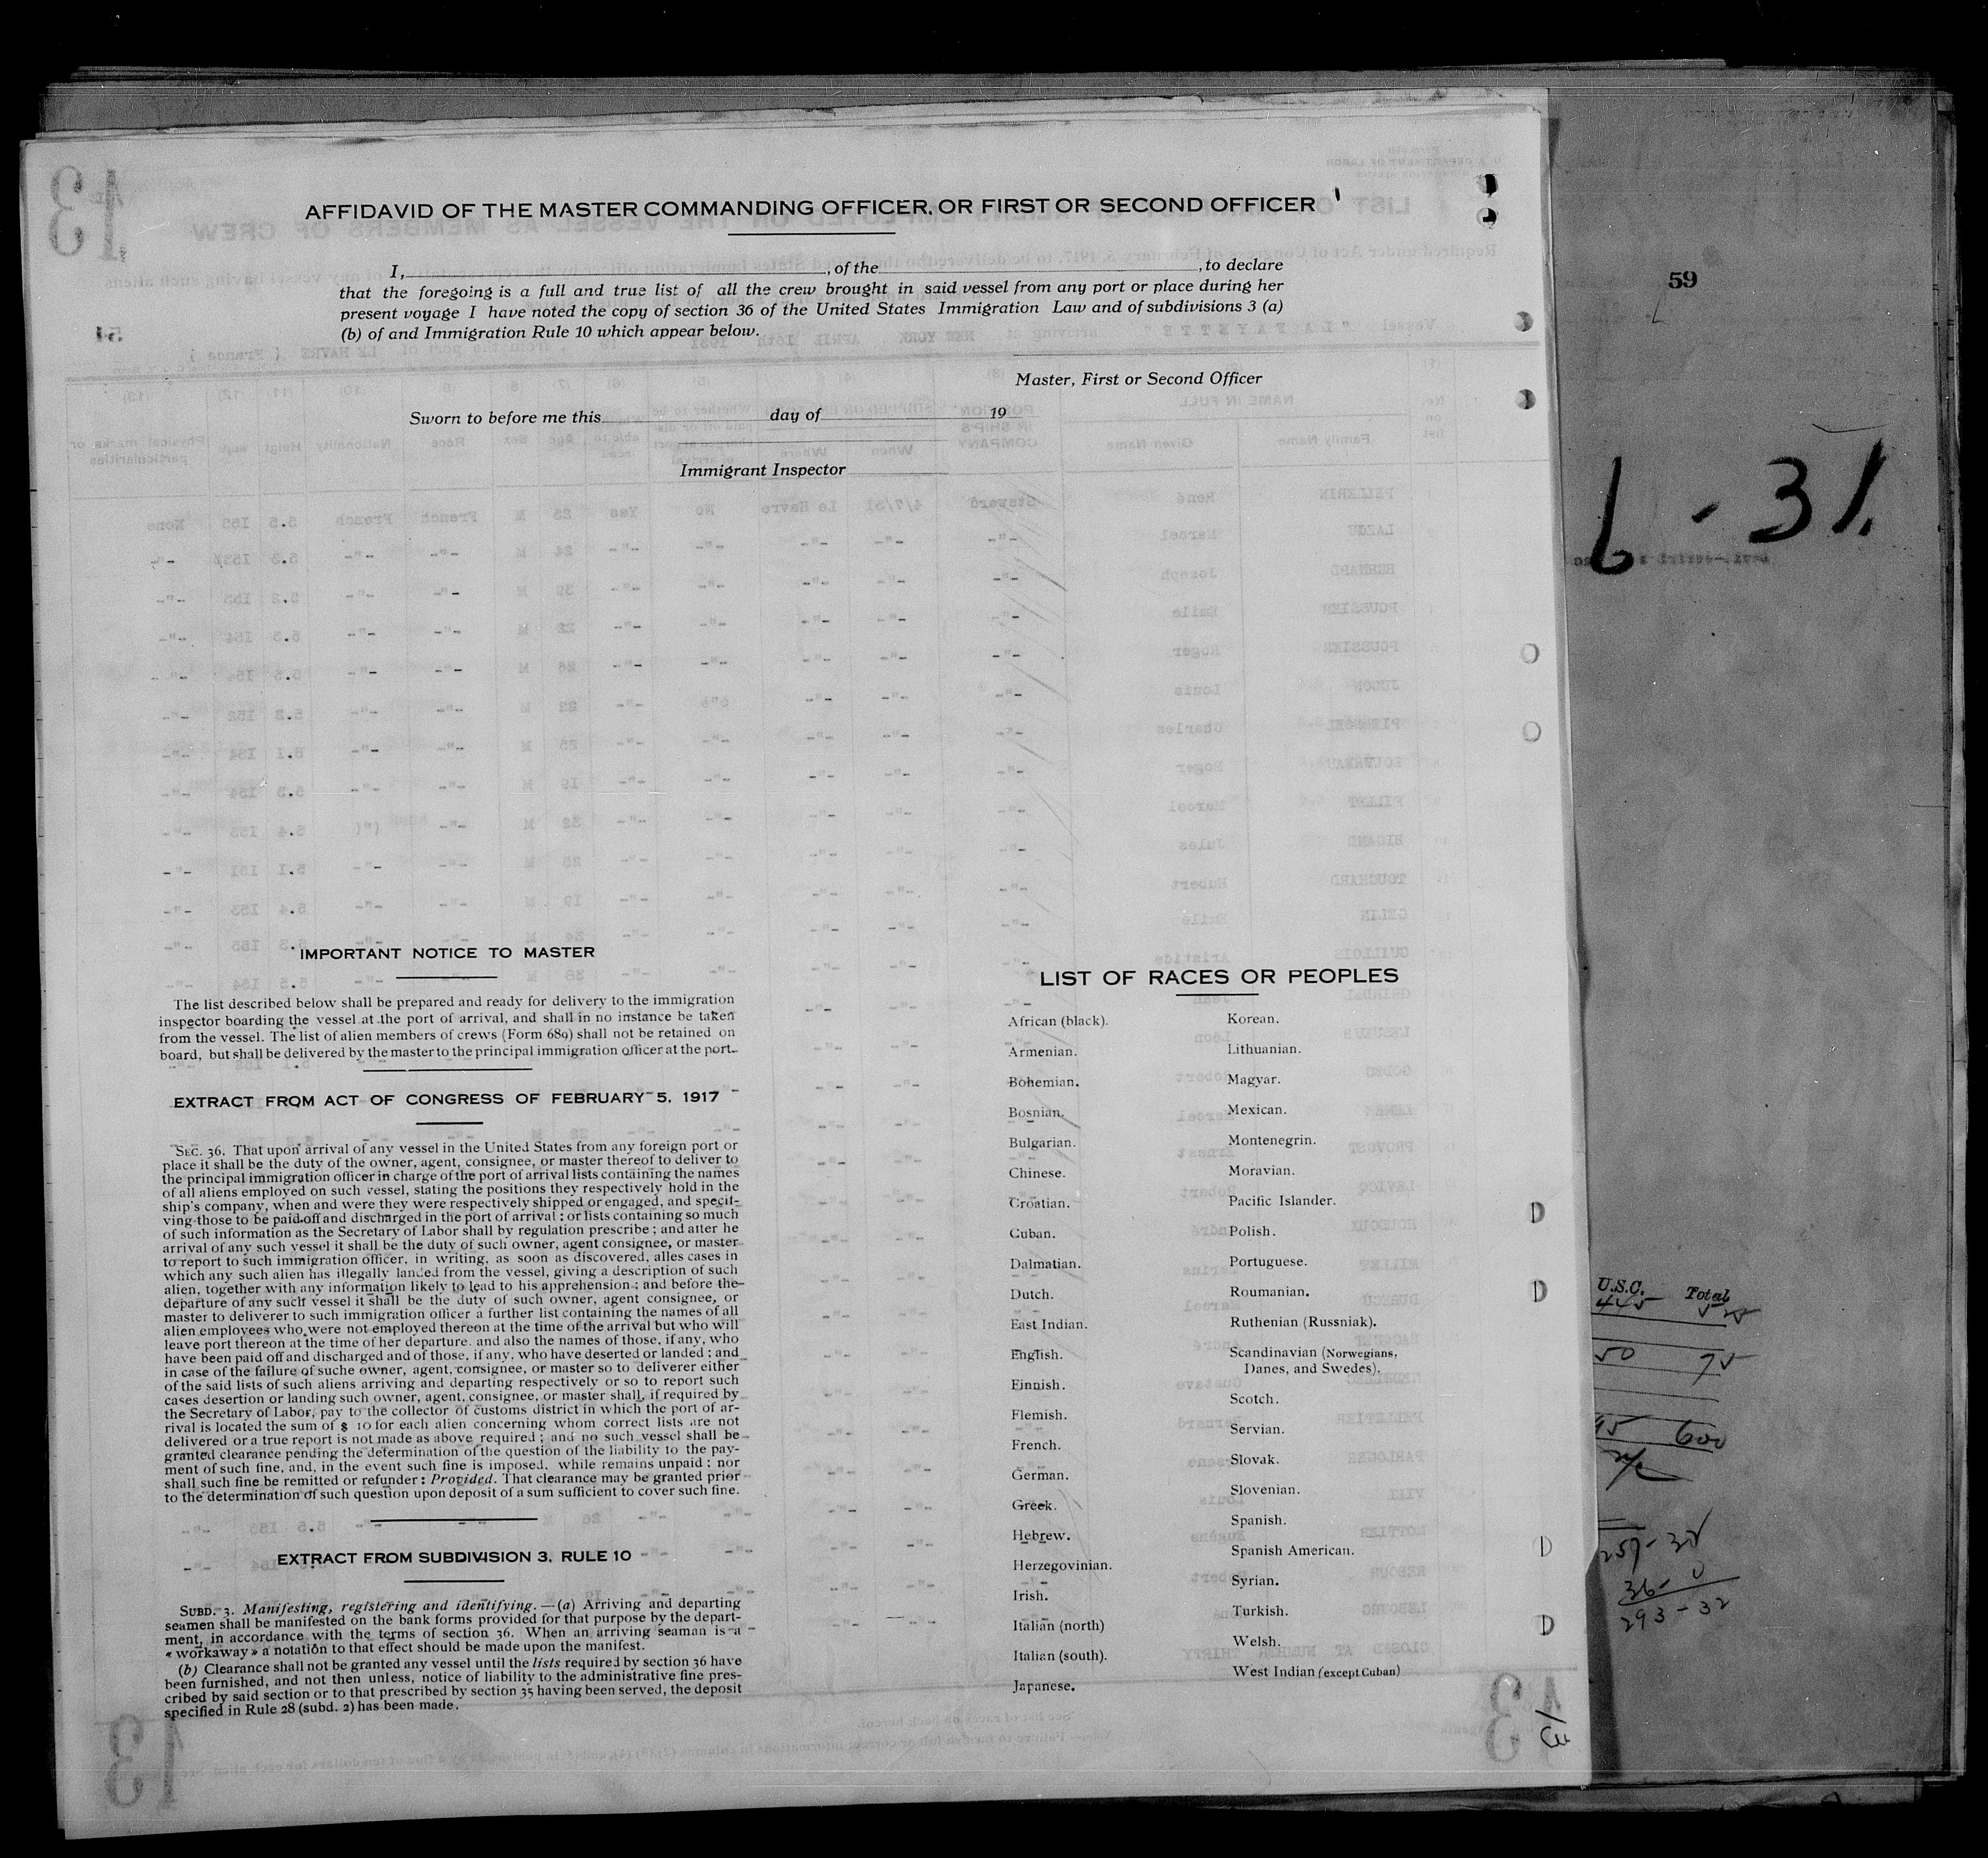 AFFIDAVID OF THE MASTER COMMANDING OFFICER, OR FIRST OR SECOND OFFICER
I, , of the , to declare
that the foregoing is a full and true list of all the crew brought in said vessel from any port or place during her
present voyage I have noted the copy of section 36 of the United States Immigration Law and of subdivisions 3 (a)
(b) of and Immigration Rule 10 which appear below.
Master, First or Second Officer
Sworn to before me this day of 19
Immigrant Inspector
IMPORTANT NOTICE TO MASTER
The list described below shall be prepared and ready for delivery to the immigration
inspector boarding the vessel at the port of arrival, and shall in no instance be taken
from the vessel. The list of alien members of crews (Form 689) shall not be retained on
board, but shall be delivered by the master to the principal immigration officer at the port.
EXTRACT FROM ACT OF CONGRESS OF FEBRUARY 5, 1917
SEC. 36. That upon arrival of any vessel in the United States from any foreign port or
place it shall be the duty of the owner, agent, consignee, or master thereof to deliver to
the principal immigration officer in charge of the port of arrival lists containing the names
of all aliens employed on such vessel, stating the positions they respectively hold in the
ship's company, when and were they were respectively shipped or engaged, and specit-
ving those to be paid off and discharged in the port of arrival : or lists containing so much
of such information as the Secretary of Labor shall by regulation prescribe ; and atter he
arrival of any such vessel it shall be the duty of such owner, agent consignee, or master
to report to such immigration officer, in writing, as soon as discovered, alles cases in
which any such alien has illegally landed from the vessel, giving a description of such
alien, together with any information likely to lead to his apprehension ; and before the
departure of any such vessel it shall be the duty of such owner, agent consignee, or
master to deliverer to such immigration officer a further list containing the names of all
alien employees who were not employed thereon at the time of the arrival but who will
leave port thereon at the time of her departure. and also the names of those, if any, who
have been paid off and discharged and of those, if any, who have deserted or landed ; and
in case of the failure of suche owner, agent, consignee, or master so to deliverer either
of the said lists of such aliens arriving and departing respectively or so to report such
cases desertion or landing such owner, agent, consignee, or master shall, if required by
the Secretary of Labor, pay to the collector of customs district in which the port of ar-
rival is located the sum of $ 10 for each alien concerning whom correct lists are not
delivered or a true report is not made as above required ; and no such vessel shall be
granted clearance pending the determination of the question of the liability to the pay-
ment of such fine, and, in the event such fine is imposed, while remains unpaid : nor
shall such fine be remitted or refunder : Provided. That clearance may be granted prior
to the determination of such question upon deposit of a sum sufficient to cover such fine.
EXTRACT FROM SUBDIVISION 3, RULE 10
SUBD. 3. Manifesting, registering and identifying. — (a) Arriving and departing
seamen shall be manifested on the bank forms provided for that purpose by the depart-
ment, in accordance with the terms of section 36. When an arriving seaman is a
« workaway » a notation to that effect should be made upon the manifest.
(b) Clearance shall not be granted any vessel until the lists required by section 36 have
been furnished, and not then unless, notice of liability to the administrative fine pres-
cribed by said section or to that prescribed by section 35 having been served, the deposit
specified in Rule 28 (subd. 2) has been made.
LIST OF RACES OR PEOPLES
African (black).
Armenian.
Bohemian.
Bosnian.
Bulgarian.
Chinese.
Croatian.
Cuban.
Dalmatian.
Dutch.
East Indian.
English.
Finnish.
Flemish.
French.
German.
Greek.
Hebrew.
Herzegovinian.
Irish.
Italian (north)
Italian (south).
Japanese.
Korean.
Lithuanian.
Magyar.
Mexican.
Montenegrin.
Moravian.
Pacific Islander.
Polish.
Portuguese.
Roumanian.
Ruthenian (Russniak).
Scandinavian (Norwegians,
Danes, and Swedes).
Scotch.
Servian.
Slovak.
Slovenian.
Spanish.
Spanish American.
Syrian.
Turkish.
Welsh.
West Indian (except Cuban)
13
59
6 - 31
U.S.C. Total
445
50 75
600
36 - 0
293 - 32